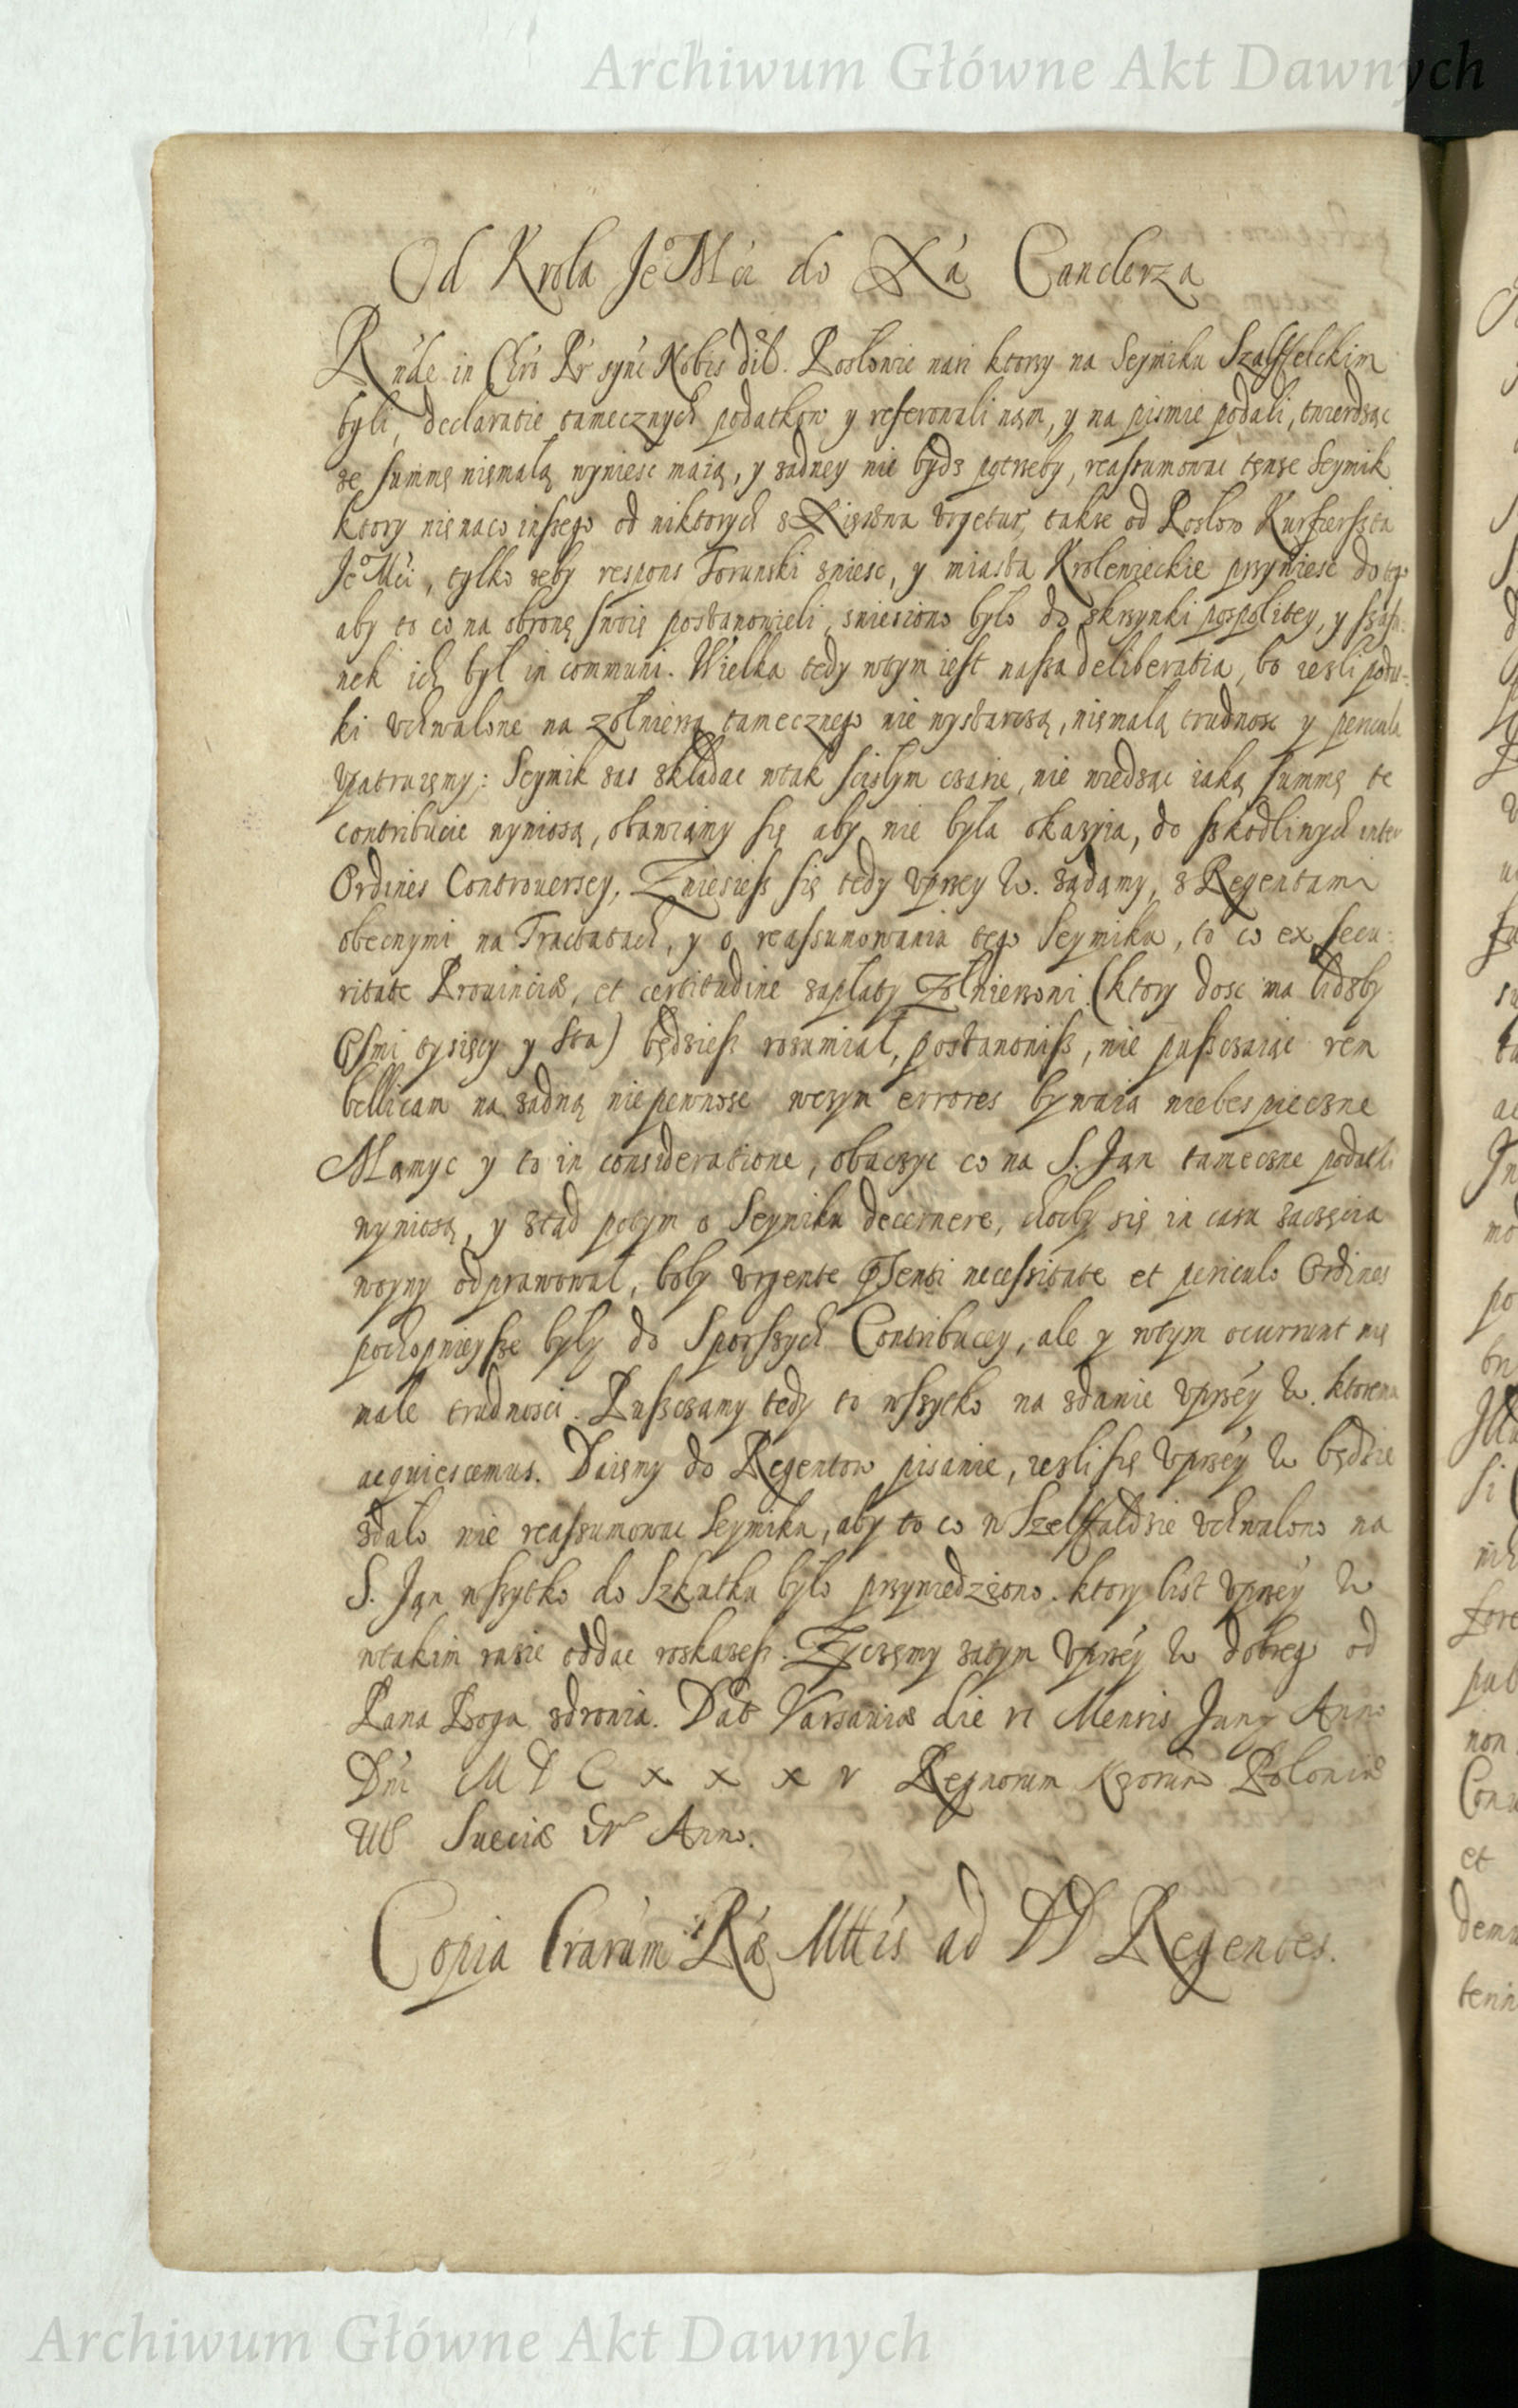 Archiwum Główne Akt Dawnych
Od Krola Je°Mci do Xá Canclerza
Rnde in Chró Pr syné Nobis dil. Posłowie nasi ktorzy na Seymiku Szalffelckim
byli, declaratie tamecznych podatkow y referowali nąm, y na pismie podali, twierdząc
że summę niemałą wyniesc maią, y żadney nie bydz potrzeby, reassumowac tęnże Seymik
ktory nię naco inszego od niktorych z Xięstwa urgetur, także od Posłow Kurfierszta
Je°Mci, tylko żeby respons Torunski zniesc, y miasta Krolewieckie przywiesc do te°
aby to co na obronę swoię postanowieli, zniesiono było do skrzynki pospolitey, y szafu:
nek ich był in communi. Wielka tedy wtym iest nasza deliberatia, bo iezli podat:
ki vchwalone na zołnierzą tamecznego nie wystarczą, niemałą trudnosc y pericula
vpatruięmy: Seymik zas składac wtak scisłym czasie, nie wiedząc iaką summę te
contribucie wyniosą, obawiamy się aby nie była okazyia, do szkodliwych inter
Ordines Controuersey, Zniesiesz się tedy vprzey W. żądamy, z Regentami
obecnymi na Tractatach, y o reassumowania tego Seymiku, to co ex secu:
ritate Prouinciæ, et certitudine zapłaty Zołnierzowi (ktory dosc ma liczby
Osmi tysięcy y sta) będziesz rozumiał, postanowisz, nie puszczaiąc rem
bellicam na żadną niepewnosc wczym errores bywaia niebespieczne
Mamyc y to in consideratione, obaczyc co na S. Jąn tameczne podatki
wyniosą, y ztąd potym o Seymiku decernere, choćby się in casu zaczęcia
woyny odprawował, boby vrgente præsenti necessitate et periculo Ordines
pochopnieysze były do sporszych Contribucey, ale y wtym ocurrunt nię
małe trudnosci. Puszczamy tedy to wszytko na zdanie vprzéy W. ktoremu
acquiescemus. Daięmy do Regentow pisanie, iezli się vprzéy W będzie
zdało nie reassumowac Seymiku, aby to co w Szelffałdzie vchwalono na
S. Jąn wszytko do Szkutku było przywiedzięno. ktory list vprzéy W
wtakim razie oddac roskażesz. Zyczęmy zatym vprzéy W dobreg° od
Pana Boga zdrowia. Dat Varsauiæ die VI Mensis Juny Anno
Dni M D C X X X V Regnorum Nrorum Poloniæ
III Sueciæ IV Anno.
Copia Lrarum Ræ Mttis ad DD Regentes.
Archiwum Główne Akt Dawnych